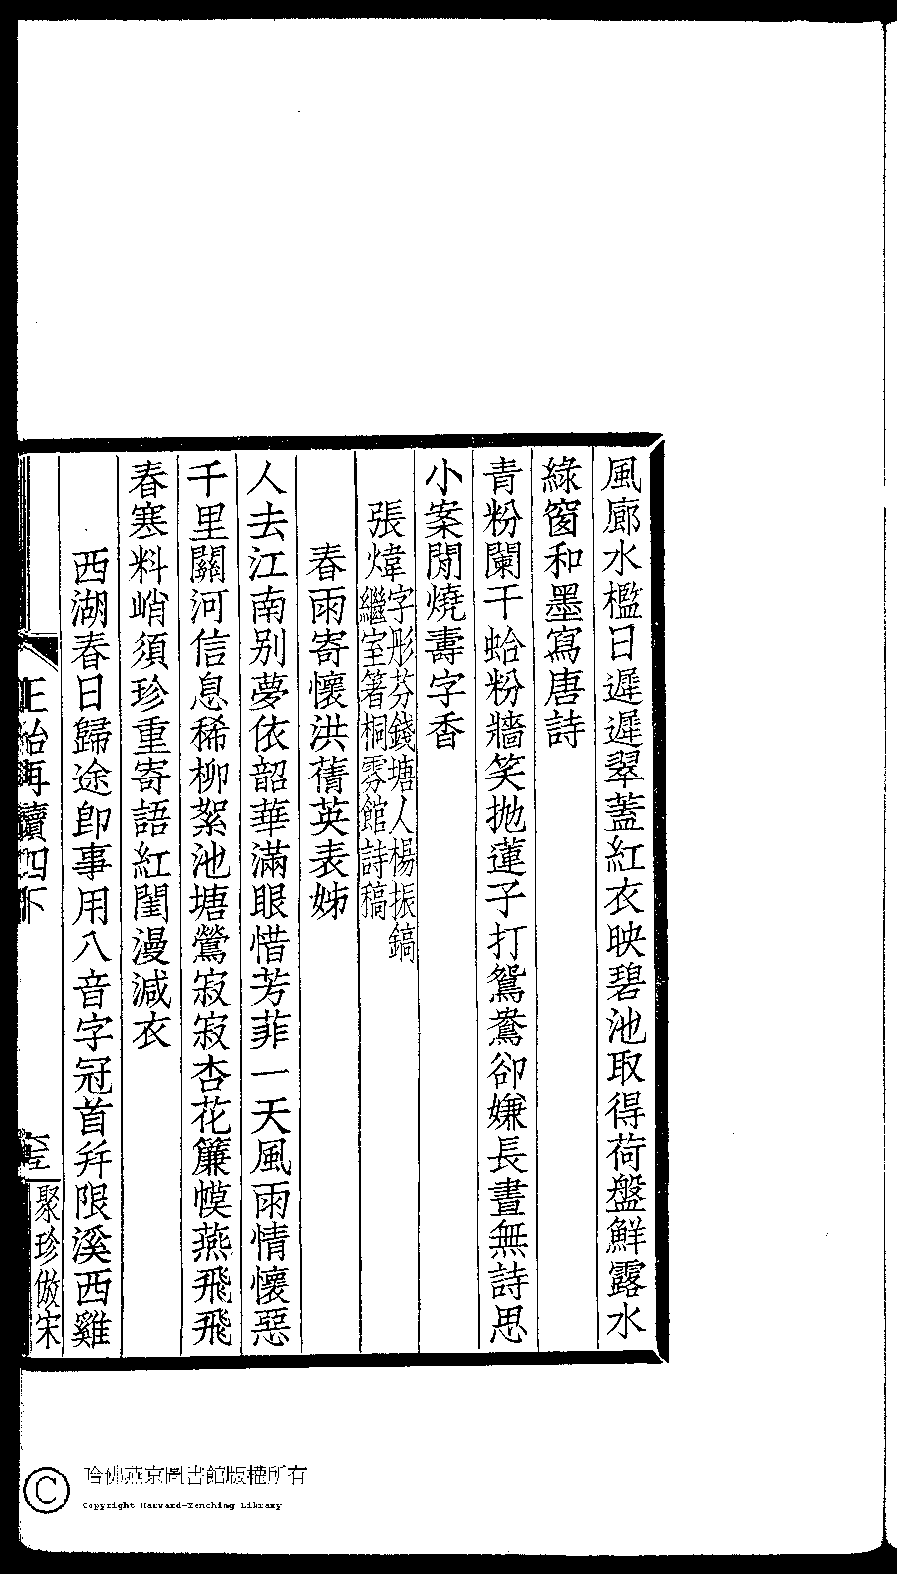 風廊水檻日遲遲翠蓋紅衣映碧池取得荷盤鮮露水
綠窗和墨寫唐詩
青粉闌干蛤粉牆笑拋蓮子打鴛鴦卻嫌長晝無詩思
小案閒燒壽字香
張煒字彤芬錢塘人楊振鎬
繼室箸桐雰館詩稿
春雨寄懷洪蒨英表姊
人去江南別夢依韶華滿眼惜芳菲一天風雨情懷惡
千里關河信息稀柳絮池塘鶯寂寂杏花簾幙燕飛飛
春寒料峭須珍重寄語紅閨漫減衣
西湖春日歸途卽事用八音字冠首幷限溪西雞
正始再續四下
聚珍倣宋
哈佛燕京圖書館版權所有
Copyright Harvard-Yenching Library